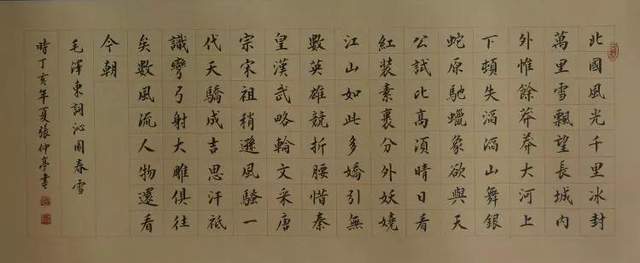 北國風光千里冰封
萬里雪飄望長城內
外惟餘莽莽大河上
下頓失滔滔山舞銀
蛇原馳蠟象欲與天
公試比高須晴日看
紅裝素裹分外妖嬈
江山如此多嬌引無
數英雄競折腰惜秦
皇漢武略輸文采唐
宗宋祖稍遜風騷一
代天驕成吉思汗祗
識彎弓射大雕俱往
矣數風流人物還看
今朝
毛澤東詞沁園春雪
時丁亥年夏張仲亭書